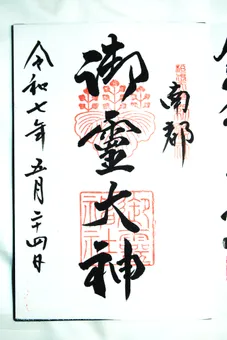 南都
御霊大神
令和七年五月二十四日
御霊神社